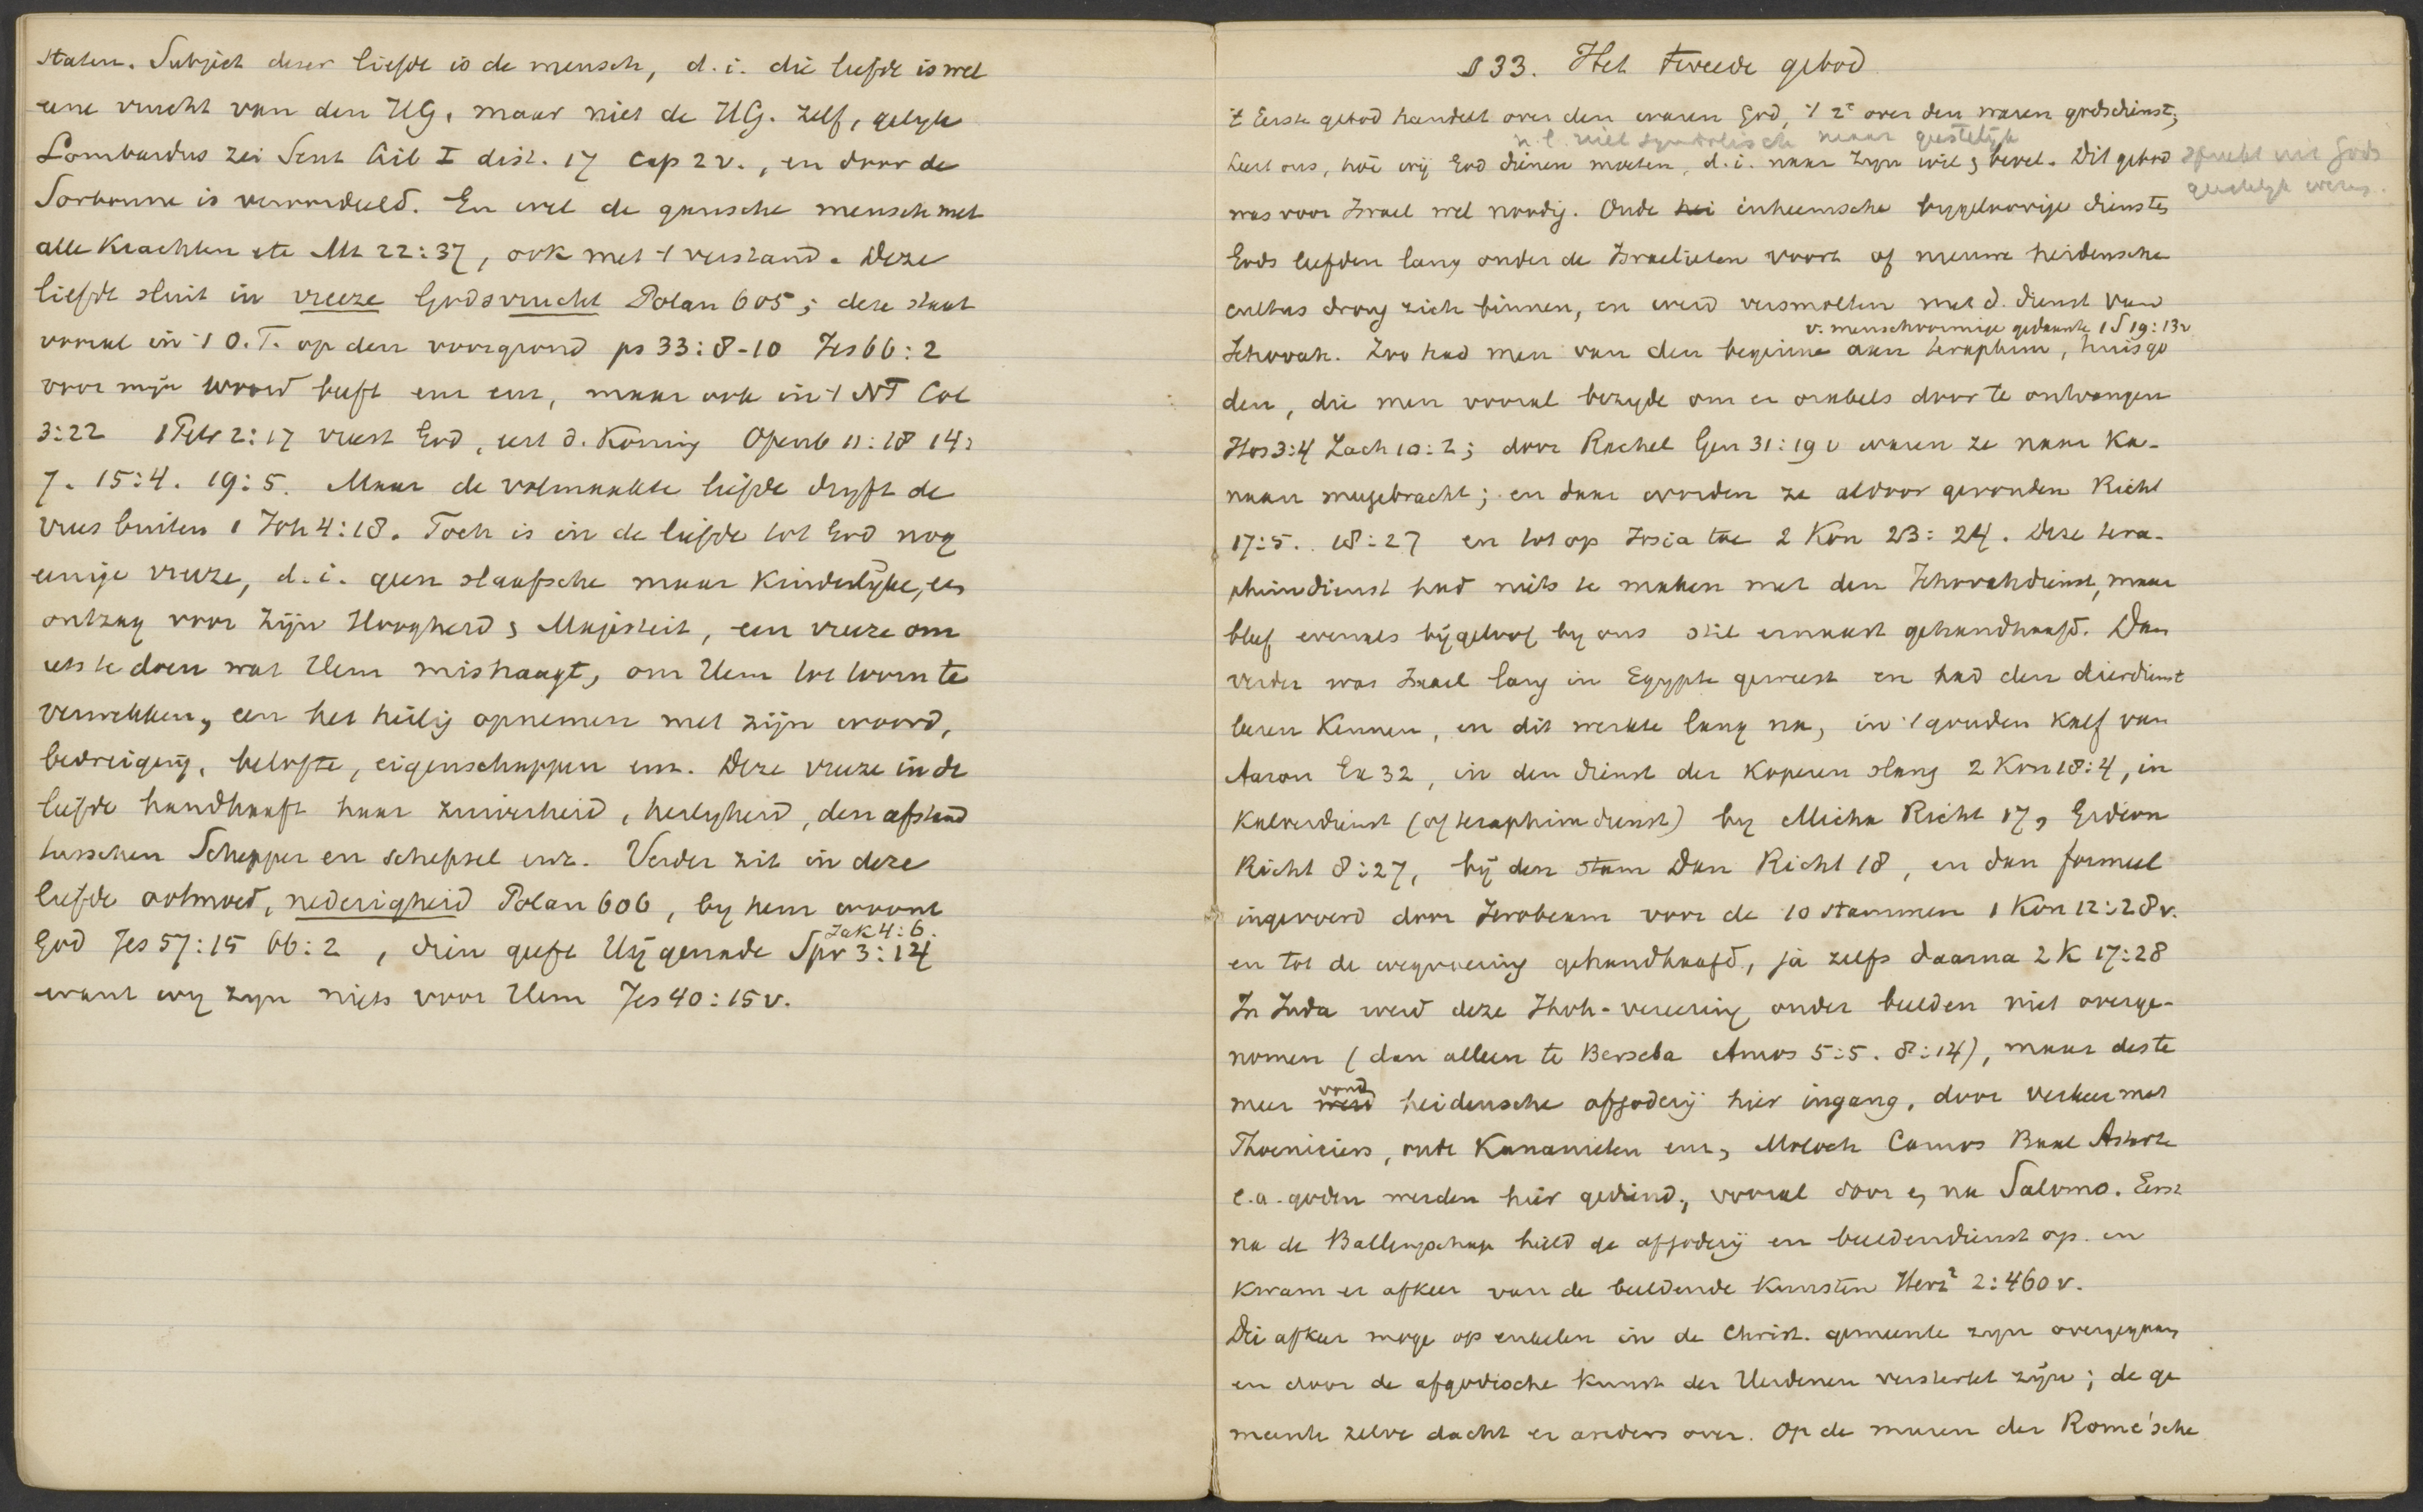 staten. Subject dezer liefde is de mensch, d.i. die liefde is wel
eene vrucht van den HG, maar niet de HG. zelf, gelijk
Lombardus zei Sent Lib I dist. 17 cap 2 v., en door de
Sorbonne is veroordeeld. En wel de gansche mensch met
alle Krachten etc Mt 22:37, ook met 't verstand. Deze
liefde sluit in vreeze Godsvrucht Polan 605; deze staat
vooral in 't O.T. op den voorgrond ps 33:8-10 Jes 66:2
voor mijn woord beeft enz enz, maar ook in 't NT Col
3:22 1 Petr 2:17 vreest God, eert d. Koning Openb 11:18 14:
7. 15:4. 19:5. Maar de volmaakte liefde dryft de
vrees buiten 1 Joh 4:18. Toch is in de liefde tot God nog
eenige vreeze, d.i. geen slaafsche maar Kinderlijke, een
ontzag voor zijn Hoogheid en Majesteit, een vreeze om
iets te doen wat Hem mishaagt, om Hem tot toorn te
verwekken, een het heilig opnemen met zijn woord,
bedreiging, belofte, eigenschappen enz. Deze vreeze in de
liefde handhaaft haar zuiverheid, heiligheid, den afstand
tusschen Schepper en schepsel enz. Verder zit in deze
liefde ootmoed, nederigheid Polan 606, by hem woont
Jak 4:6.
God Jes 57:15 66:2, dien geeft Hij genade Spr 3:14
want wy zyn niets voor Hem Jes 40:15 v.
§ 33. Het tweede gebod
't Eerste gebod handelt over den waren God, 't 2e over den waren godsdienst,
n.l. niet symbolisch maar geestelijk
leert ons, hoe wij God dienen moeten, d.i. naar zyn wil en bevel. Dit gebod spruit uit Gods
geestelijk wezen.
was voor Israel wel noodig. Oude hei inheemsche bygeloovige diensten
Gods leefden lang onder de Israelieten voort of nieuwe heidensche
cultus drong zich binnen, en werd versmolten met d. dienst van
v. menschvormige gedaante 1 S 19:13v
Jehovah. Zoo had men van den beginne aan teraphim, huisgo
den, die men vooral bezigde om er orakels door te ontvangen
Hos 3:4 Zach 10:2; door Rachel Gen 31:19 v waren ze naar Ka-
naan meegebracht; en daar worden ze aldoor gevonden Richt
17:5. 18:27 en tot op Josia toe 2 Kon 23:24. Deze tera-
phimdienst had niets te maken met den Jehovahdienst, maar
bleef evenals bijgeloof by ons stil ernaast gehandhaafd. Dan
verder was Israel lang in Egypte geweest en had den dierdienst
leeren Kennen, en dit werkte lang na, in 't gouden Kalf van
Aaron Ex 32, in den dienst der Koperen slang 2 Kon 18:4, in
Kalverdienst (of teraphimdienst) by Micha Richt 17, Gideon
Richt 8:27, bij den stam Dan Richt 18, en dan formeel
ingevoerd door Jerobeam voor de 10 stammen 1 Kon 12:28 v.
en tot de wegvoering gehandhaafd, ja zelfs daarna 2 K 17:28
In Juda werd deze Jhvh-vereering onder beelden niet overge-
nomen (dan alleen te Berseba Amos 5:5. 8:14), maar deste
vond
meer werd heidensche afgoderij hier ingang, door verkeer met
Phoeniciers, oude Kanaanieten enz, Moloch Camos Baal Astarte
e.a. goden werden hier gediend, vooral door en na Salomo. Eerst
na de Ballingschap hield de afgoderij en beeldendienst op en
Kwam er afkeer van de beeldende Kunsten Herz² 2:460 v.
Die afkeer moge op enkelen in de Christ. gemeente zyn overgegaan
en door de afgodische Kunst der Heidenen versterkt zijn; de ge
meente zelve dacht er anders over. Op de muren der Rome'sche